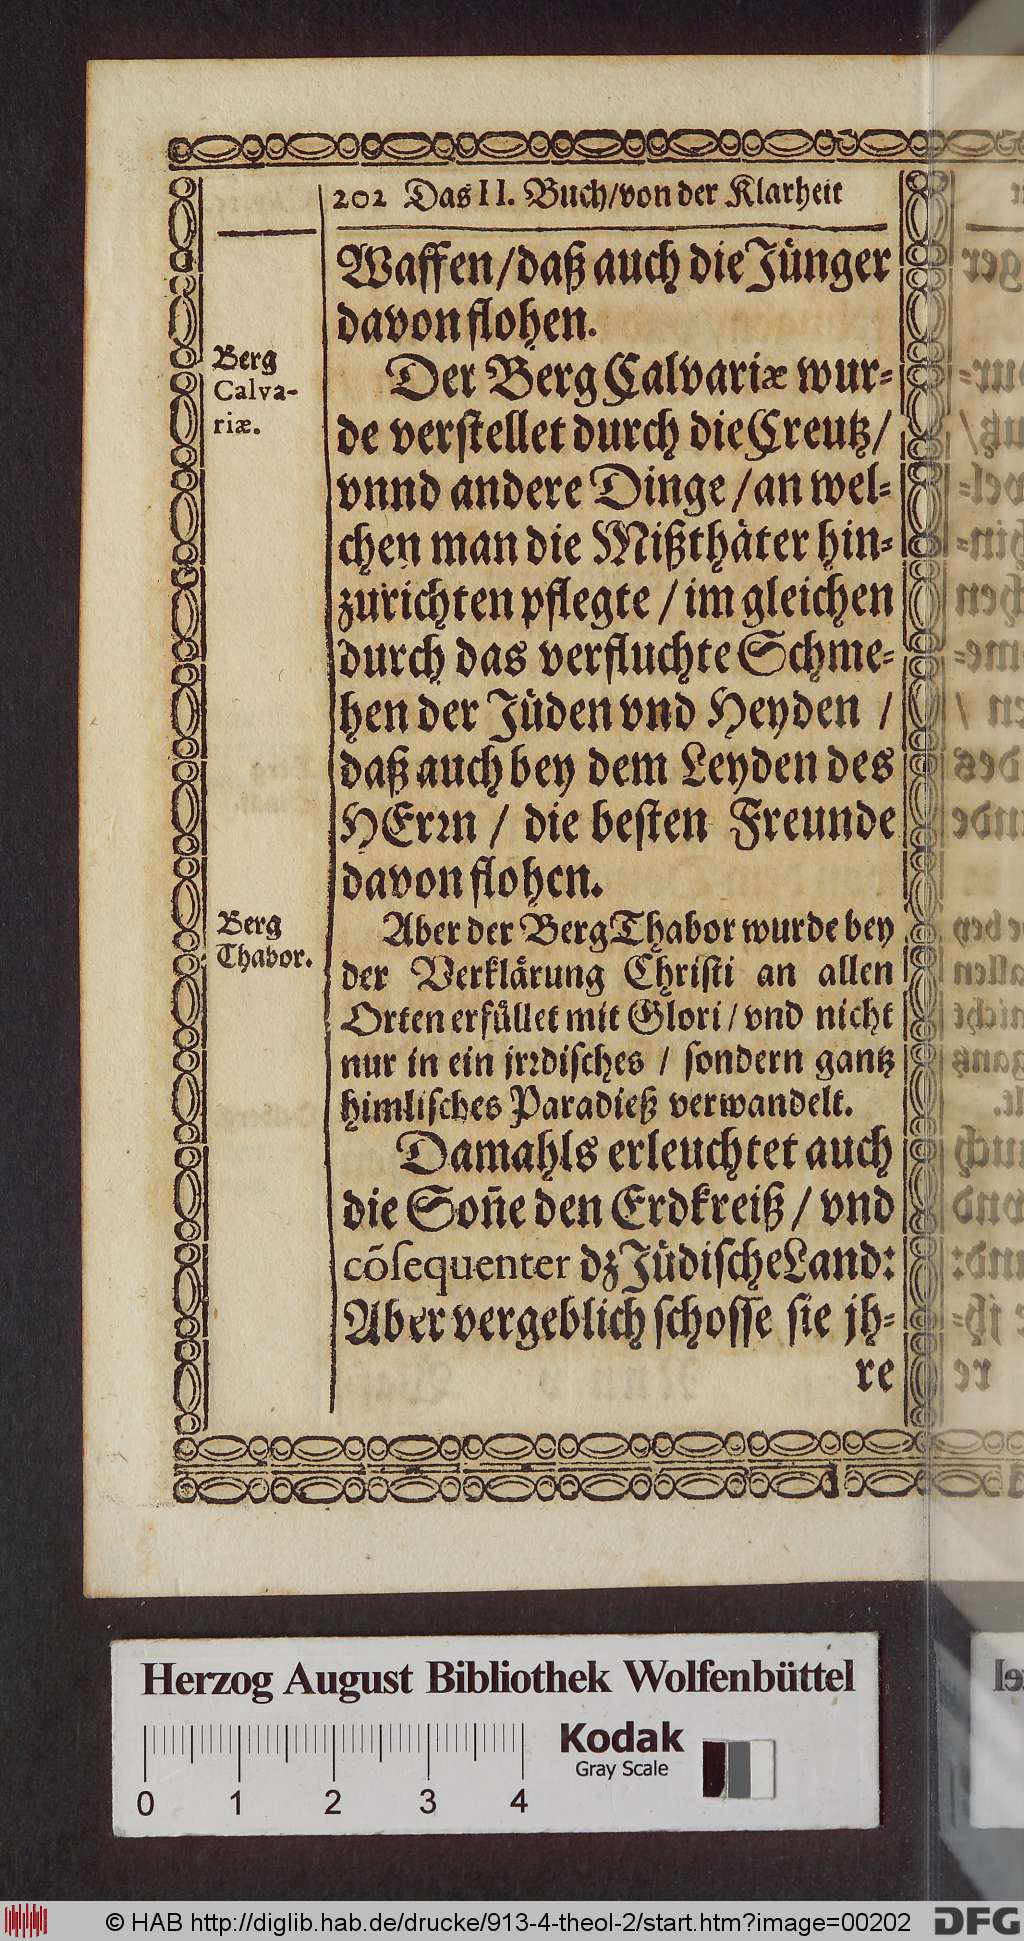 202 Das II. Buch/von der Klarheit
Waffen/daß auch die Jünger
davon flohen.
Berg
Calva-
riæ.
Der Berg Calvariæ wur-
de verstellet durch die Creutz/
vnnd andere Dinge/an wel-
chen man die Mißthäter hin-
zurichten pflegte/im gleichen
durch das verfluchte Schme-
hen der Jüden vnd Heyden /
daß auch bey dem Leyden des
HErrn / die besten Freunde
davon flohen.
Berg
Thabor.
Aber der Berg Thabor wurde bey
der Verklärung Christi an allen
Orten erfüllet mit Glori/vnd nicht
nur in ein jrrdisches / sondern gantz
himlisches Paradieß verwandelt.
Damahls erleuchtet auch
die Soñe den Erdkreiß/vnd
cõsequenter dz Jüdische Land:
Aber vergeblich schosse sie jh-
re
Herzog August Bibliothek Wolfenbüttel
Kodak
Gray Scale
0 1 2 3 4
© HAB http://diglib.hab.de/drucke/913-4-theol-2/start.htm?image=00202
DFG